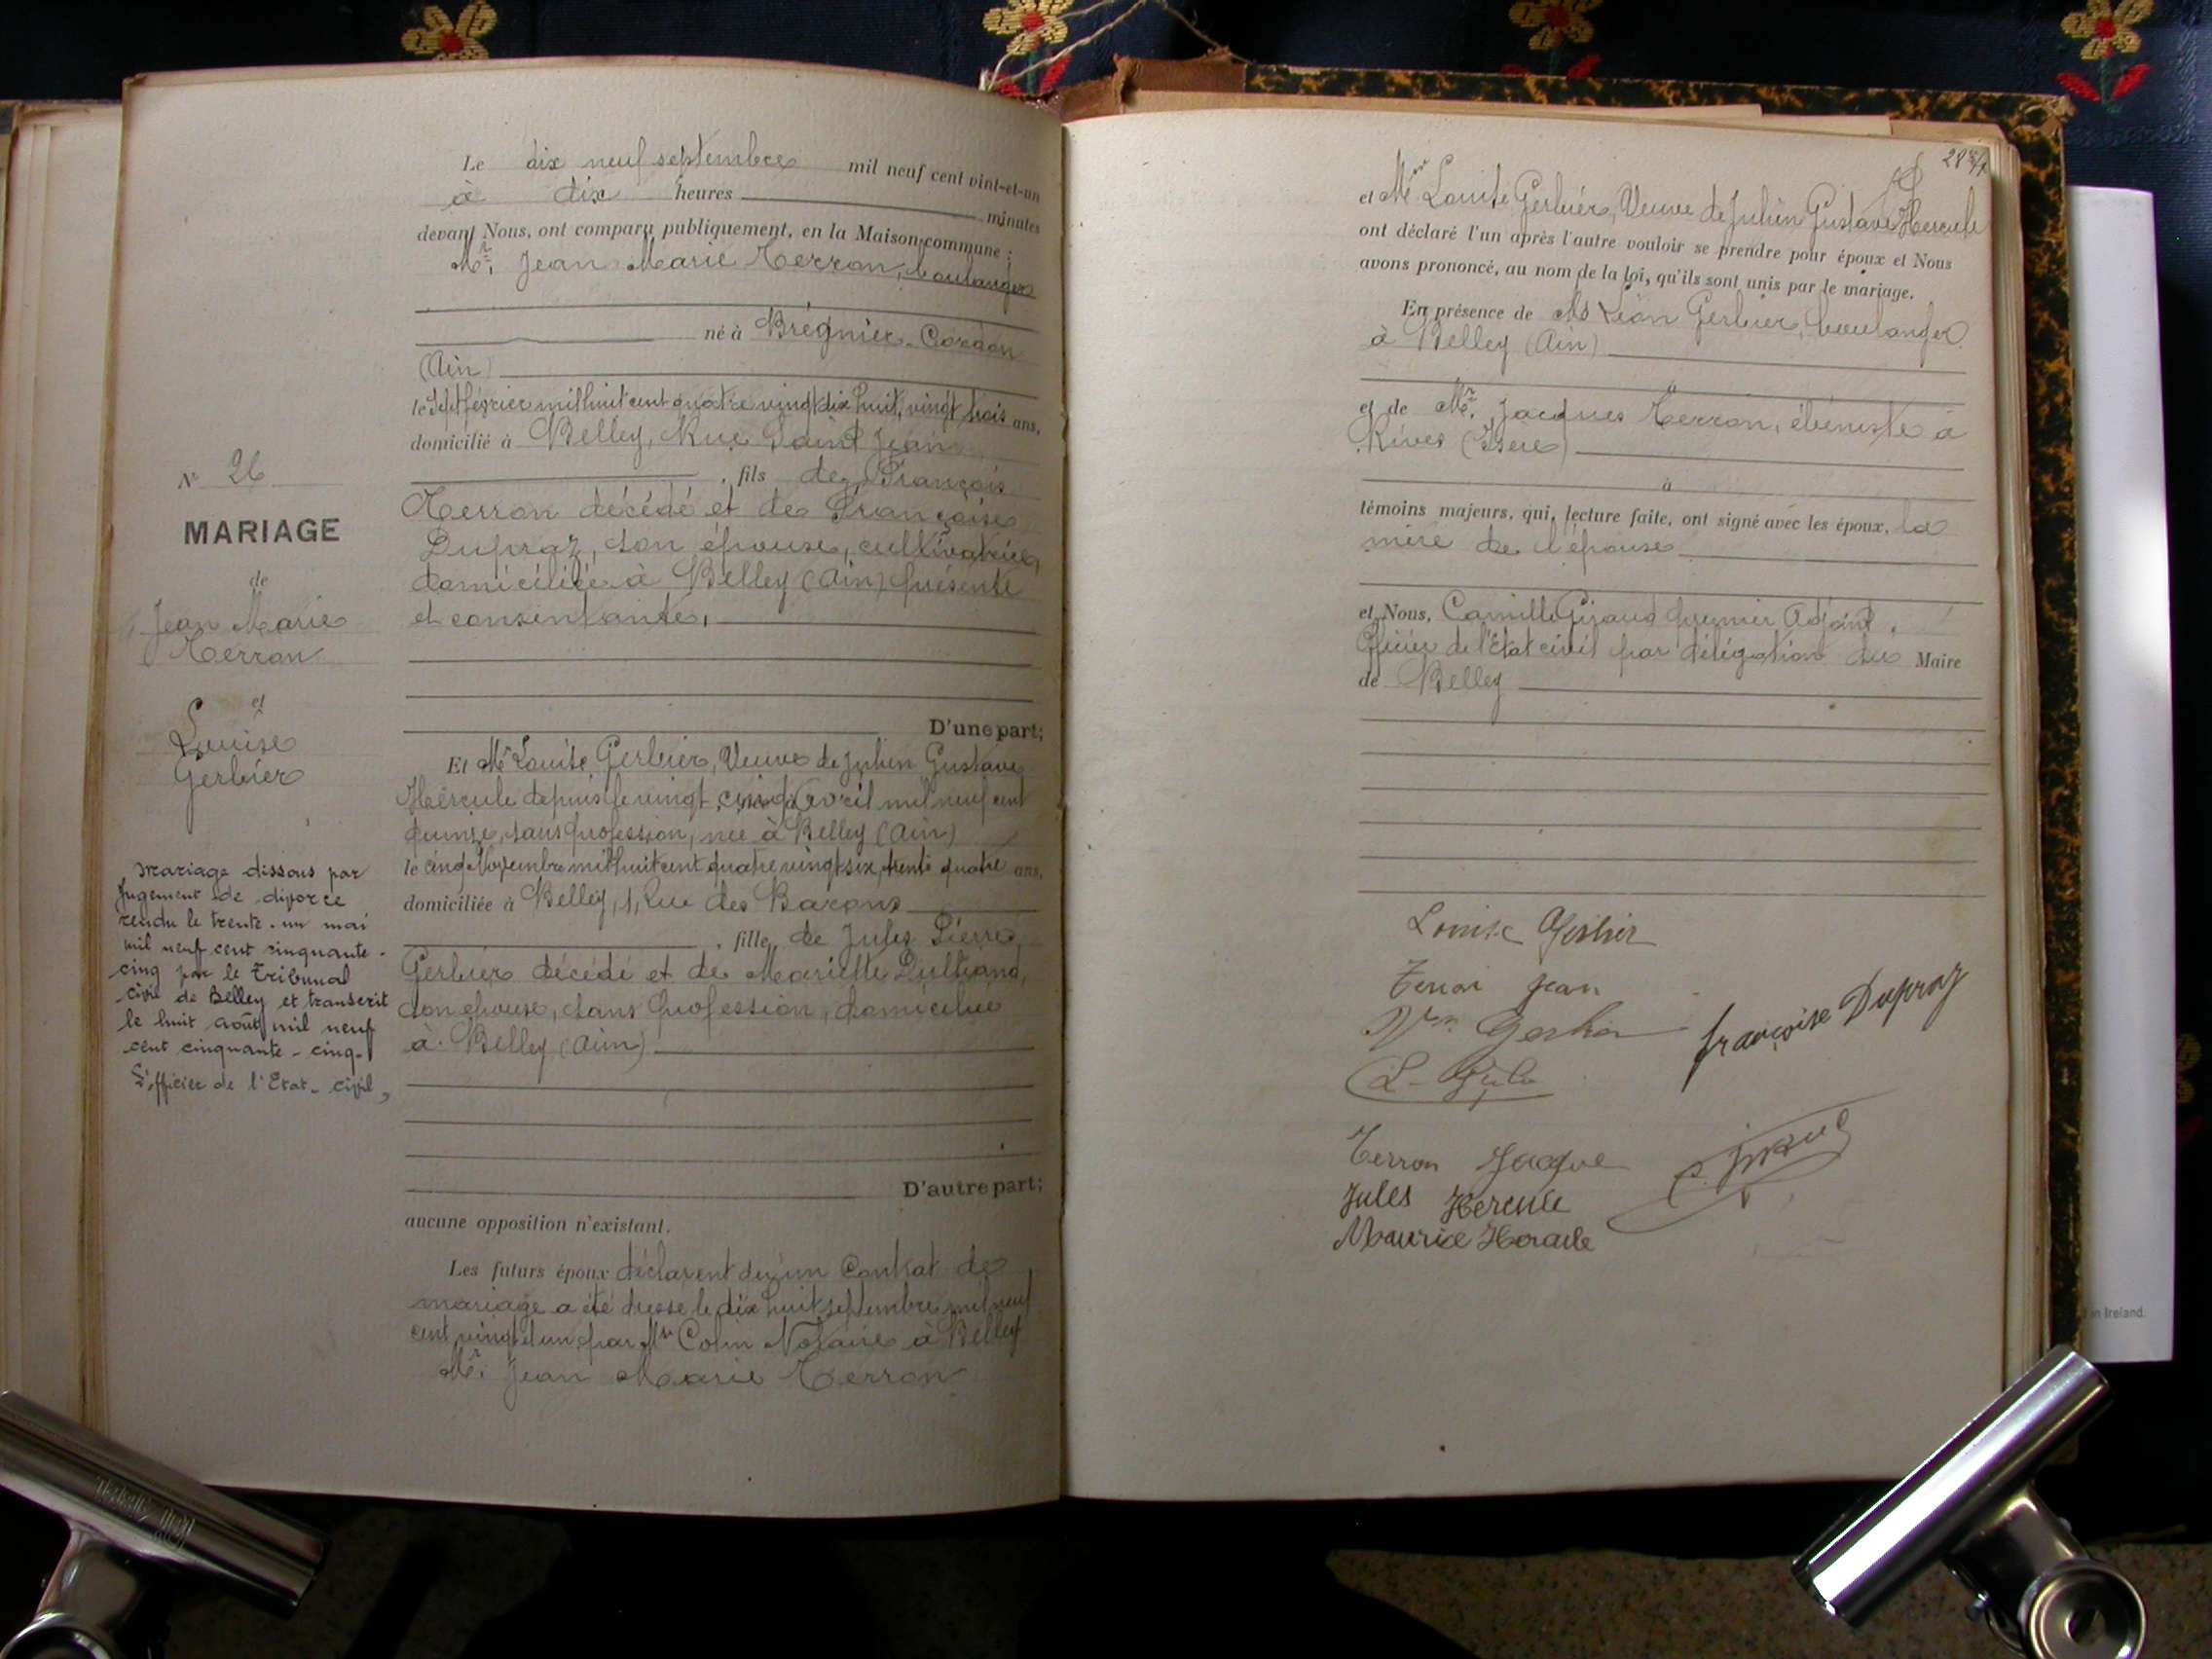 Le dix neuf septembre mil neuf cent vint-et-un
à dix heures minutes
devant Nous, ont comparu publiquement, en la Maison commune :
Mr. Jean Marie Terron, boulanger
né à Brégnier-Cordon
(Ain)
le sept février mil huit cent quatre vingt dix huit, vingt trois ans,
domicilié à Belley, Rue Saint Jean
, fils de François
Terron décédé et de Françoise
Dupraz, son épouse, cultivatrice,
domiciliée à Belley (Ain) présente
et consentante,
D'une part;
Et Me Louise Gerbier, Veuve de Julien Gustave
Hercule depuis le vingt cinq Avril mil neuf cent
quinze, sans profession, née à Belley (Ain)
le cinq Novembre mil huit cent quatre vingt six, trente quatre ans,
domiciliée à Belley, 1, Rue des Barons
, fille de Jules Pierre
Gerbier décédé et de Mariette
son épouse, sans profession, domiciliée
à Belley (Ain)
D'autre part;
aucune opposition n'existant.
Les futurs époux déclarent qu'un Contrat de
mariage a été dressé le dix huit septembre mil neuf
cent vingt et un par Me Colin Notaire à Belley
Mr. Jean Marie Terron
No 26
MARIAGE
de
Jean Marie
Terron
et
Louise
Gerbier
Mariage dissous par
Jugement de divorce
rendu le trente-un mai
mil neuf cent cinquante-
cinq par le Tribunal
civil de Belley et transcrit
le huit août mil neuf
cent cinquante-cinq.
L'officier de l'Etat-civil,
28
et Me Louise Gerbier, Veuve de Julien Gustave Hercule
ont déclaré l'un après l'autre vouloir se prendre pour époux et Nous
avons prononcé, au nom de la loi, qu'ils sont unis par le mariage.
En présence de Léon Gerbier, boulanger
à Belley (Ain)
à
et de Mr. Jacques Terron, ébéniste à
Rives (Isère)
à
témoins majeurs, qui, lecture faite, ont signé avec les époux, la
mère de l'épouse
et Nous, Camille Giraud premier Adjoint,
Officier de l'Etat civil par délégation du Maire
de Belley
Louise Gerbier
Terron Jean
Vve Gerbier
Françoise Dupraz
Terron Jacque
Jules Hercule
Maurice Hercule
in Ireland.